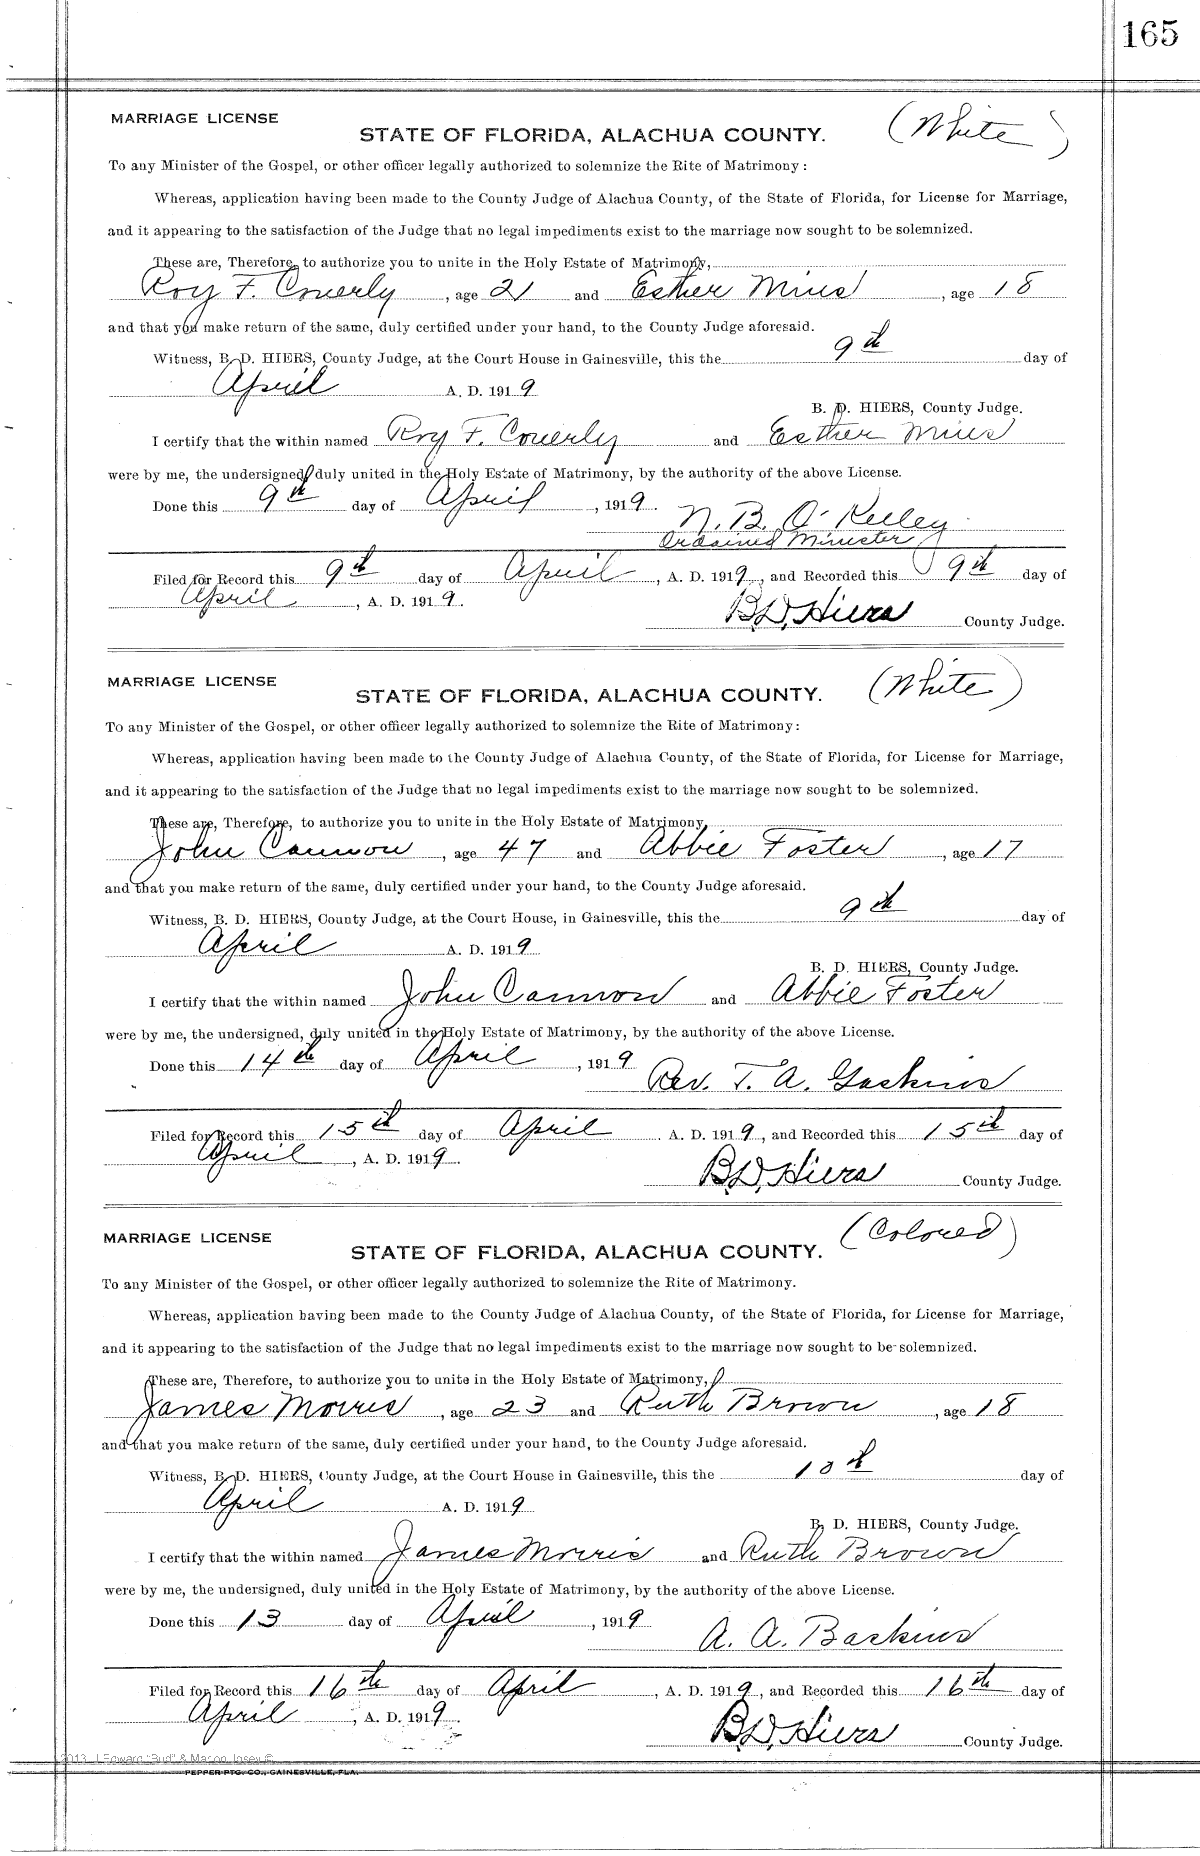 165
MARRIAGE LICENSE
STATE OF FLORIDA, ALACHUA COUNTY. (White)
To any Minister of the Gospel, or other officer legally authorized to solemnize the Rite of Matrimony:
Whereas, application having been made to the County Judge of Alachua County, of the State of Florida, for License for Marriage,
and it appearing to the satisfaction of the Judge that no legal impediments exist to the marriage now sought to be solemnized.
These are, Therefore, to authorize you to unite in the Holy Estate of Matrimony,
Roy F. Coverly, age 21 and Esther Mius, age 18
and that you make return of the same, duly certified under your hand, to the County Judge aforesaid.
Witness, B. D. HIERS, County Judge, at the Court House in Gainesville, this the 9th day of
April A. D. 1919
B. D. HIERS, County Judge.
I certify that the within named Roy F. Coverly and Esther Mius
were by me, the undersigned, duly united in the Holy Estate of Matrimony, by the authority of the above License.
Done this 9th day of April, 1919.
N. B. O'Kelley
Ordained Minister
Filed for Record this 9th day of April, A. D. 1919, and Recorded this 9th day of
April, A. D. 1919.
B. D. Hiers County Judge.
MARRIAGE LICENSE
STATE OF FLORIDA, ALACHUA COUNTY. (White)
To any Minister of the Gospel, or other officer legally authorized to solemnize the Rite of Matrimony:
Whereas, application having been made to the County Judge of Alachua County, of the State of Florida, for License for Marriage,
and it appearing to the satisfaction of the Judge that no legal impediments exist to the marriage now sought to be solemnized.
These are, Therefore, to authorize you to unite in the Holy Estate of Matrimony,
John Cannon, age 47 and Abbie Foster, age 17
and that you make return of the same, duly certified under your hand, to the County Judge aforesaid.
Witness, B. D. HIERS, County Judge, at the Court House, in Gainesville, this the 9th day of
April A. D. 1919
B. D. HIERS, County Judge.
I certify that the within named John Cannon and Abbie Foster
were by me, the undersigned, duly united in the Holy Estate of Matrimony, by the authority of the above License.
Done this 14th day of April, 1919
Rev. T. A. Gaskins
Filed for Record this 15th day of April A. D. 1919, and Recorded this 15th day of
April, A. D. 1919.
B. D. Hiers County Judge.
MARRIAGE LICENSE
STATE OF FLORIDA, ALACHUA COUNTY. (Colored)
To any Minister of the Gospel, or other officer legally authorized to solemnize the Rite of Matrimony.
Whereas, application having been made to the County Judge of Alachua County, of the State of Florida, for License for Marriage,
and it appearing to the satisfaction of the Judge that no legal impediments exist to the marriage now sought to be solemnized.
These are, Therefore, to authorize you to unite in the Holy Estate of Matrimony,
James Morris, age 23 and Ruth Brown, age 18
and that you make return of the same, duly certified under your hand, to the County Judge aforesaid.
Witness, B. D. HIERS, County Judge, at the Court House in Gainesville, this the 10th day of
April A. D. 1919
B. D. HIERS, County Judge.
I certify that the within named James Morris and Ruth Brown
were by me, the undersigned, duly united in the Holy Estate of Matrimony, by the authority of the above License.
Done this 13 day of April, 1919
A. A. Baskins
Filed for Record this 16th day of April, A. D. 1919, and Recorded this 16th day of
April, A. D. 1919.
B. D. Hiers County Judge.
2013 J Edward "Bud" & Macon Josey ©
PEPPER PTG. CO., GAINESVILLE, FLA.